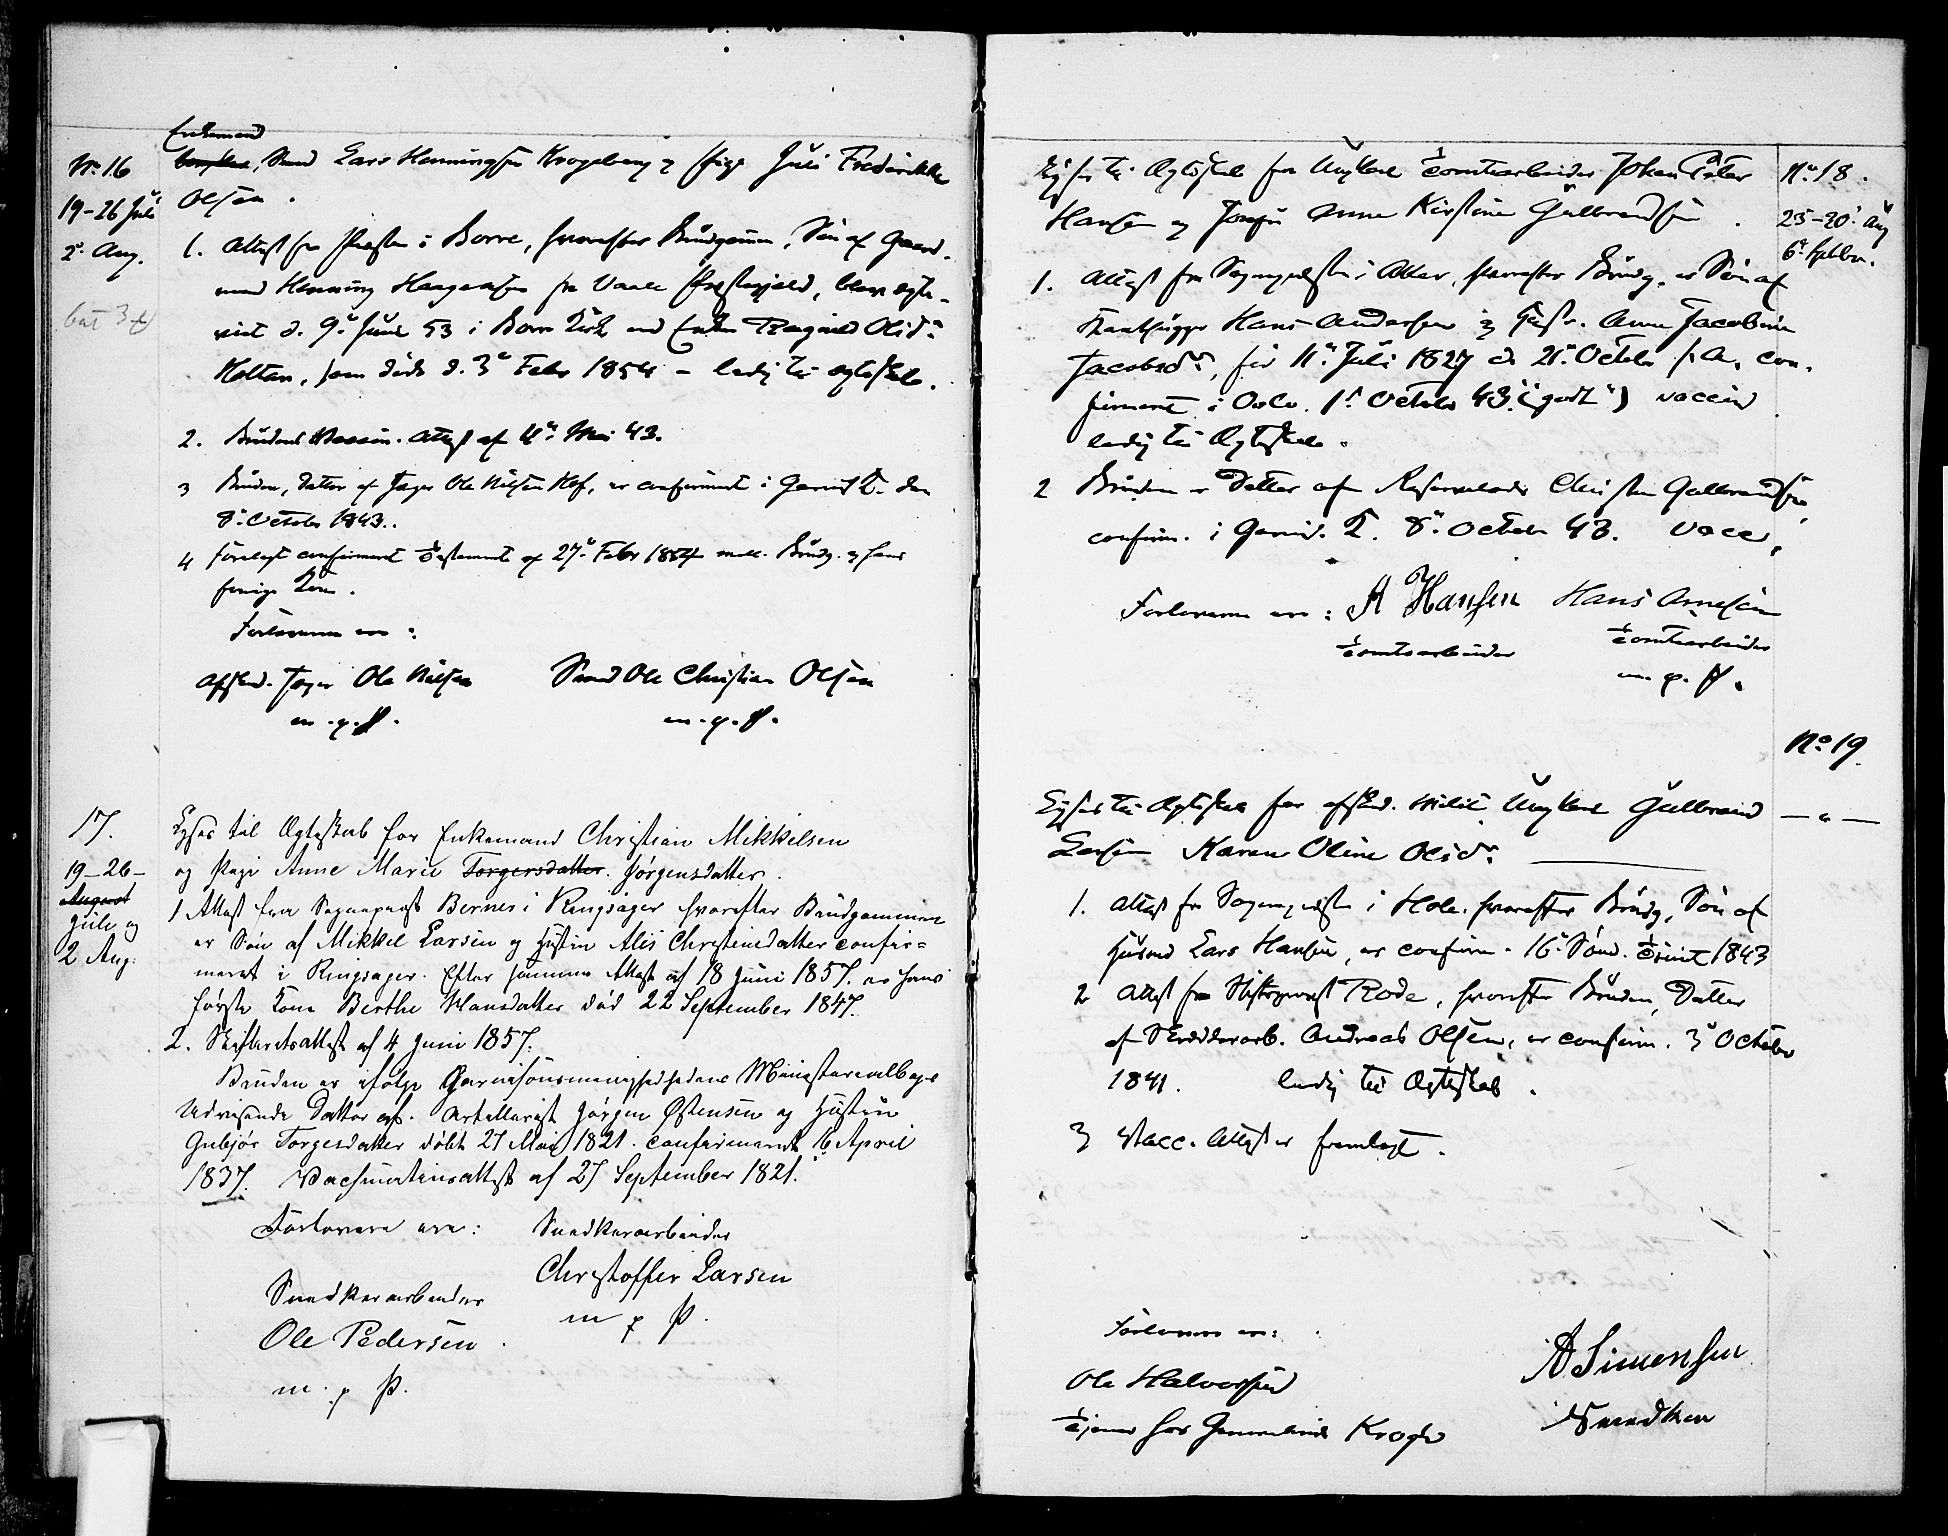 No 16
19-26 Juli
2' Aug.
bet 3 f
Enkemand
Smed Lars Henningsen Krogsberg og Pige Juli Frederikke
Olsen.
1. Attest fra Præsten i Borre, hvorefter Brudgommen, Søn af Gaard-
mand Henning Haagensen fra Vaale Præstegjeld, blev egte-
viet d. 9' Juni 53 i Borre Kirke med Enken Ragnild Olsdr
Holtan, som døde d. 3' Febr 1854 – ledig til egteskab.
2. Brudens Vaccin. Attest af 11' Mai 43.
3 Bruden, Datter af Jæger Ole Nilsen Hof, er confirmeret i Garnis. K. den
8' October 1843.
4 Forelagt confirmeret Testament af 27' Febr 1854 mell. Brudg. og hans
forrige Kone.
Forlovere ere:
Afsked. Jæger Ole Nilsen
m. p. P.
Smed Ole Christian Olsen
m. p. P.
17.
19-26-
August
Juli og
2 Aug.
Lyses til Ægteskab for Enkemand Christian Mikkelsen
og Pige Anne Marie Torgersdatter. Jørgensdatter.
1 Attest fra Sognepræst Bernes i Ringsager hvorefter Brudgommen
er Søn af Mikkel Larsen og Hustru Alis Christensdatter confir=
meret i Ringsager. Efter samme Attest af 18 Juni 1857. er hans
første Kone Berthe Hansdatter død 22 September 1847.
2. Skifteretsattest af 4 Juni 1857.
Bruden er ifølge Garnisonsmenighedens Ministerialbogs
Udvisende Datter af. Artellerist Jørgen Østensen og Hustru
Gubjør Torgesdatter døbt 27 Mai 1821. confirmeret 16 April
1837. Vacsinationsattest af 27 September 1821.
Forlovere ere:
Snedkerarbeider
Ole Pedersen
m. p P.
Snedkerarbeider
Christoffer Larsen
m p P.
No 18.
23-30' Aug
6' Septbr.
Lyses til Ægteskab for Ungkarl Tomtearbeider Johan Peter
Hansen og Jomfru Anne Kirstine Gulbrandsen.
1. Attest fra Sognepræsten i Aker, hvorefter Brudg. er Søn af
Hans Andersen og Hustr. Anne Jacobine
Jacobsdr, fød 11' Juli 1827 d. 21' Octbr s. A. con-
firmeret i Oslo. 1' October 43. ("godt") vaccin
ledig til Ægteskab.
2 Bruden er Datter af Christen Gulbrandsen,
confirm. i Garnis. K. 8' October 43. vacc.
Forloverne ere: A Hansen Hans Arnesen
Tomtearbeider
Tomtearbeider
m. p. P.
No 19.
— " —
Lyses til Ægteskab for afsked. Milit. Ungkarl Gulbrand
Larsen Karen Oline Olsdr.
1. Attest fra Sognepræsten i Hole. hvorefter Brudg, Søn af
Husmd Lars Hansen, er confirm. 16' Sønd. Trinit 1843
2 Attest fra Stiftsprovst Rode, hvorefter Bruden, Datter
af Skrædderarb. Andreas Olsen, er confirm. 3' October
1841. ledig til Ægteskab.
3 Vacc. Attest er fremlagt.
Forlovere ere:
Ole Halvorsen
Tjener hos Krogh
A Simensen
Snedker